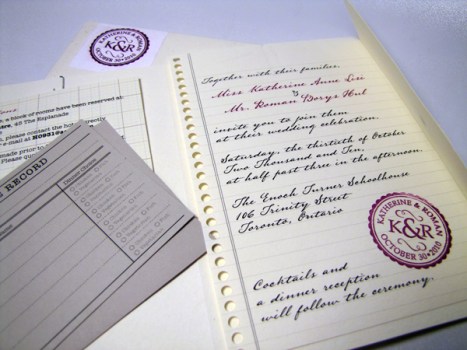 KATHERINE & ROMAN
K&R
OCTOBER 30 • 2010
Together with their families,
Miss Katherine Anne Lisi
&
Mr. Roman Borys Hul
invite you to join them
at their wedding celebration.
Saturday, the thirtieth of October
Two Thousand and Ten,
at half past three in the afternoon.
The Enoch Turner Schoolhouse
106 Trinity Street
Toronto, Ontario
KATHERINE & ROMAN
K&R
OCTOBER 30 • 2010
Cocktails and
a dinner reception
will follow the ceremony.
a block of rooms have been reserved at:
45 The Esplanade
please contact the hotel directly
RECORD